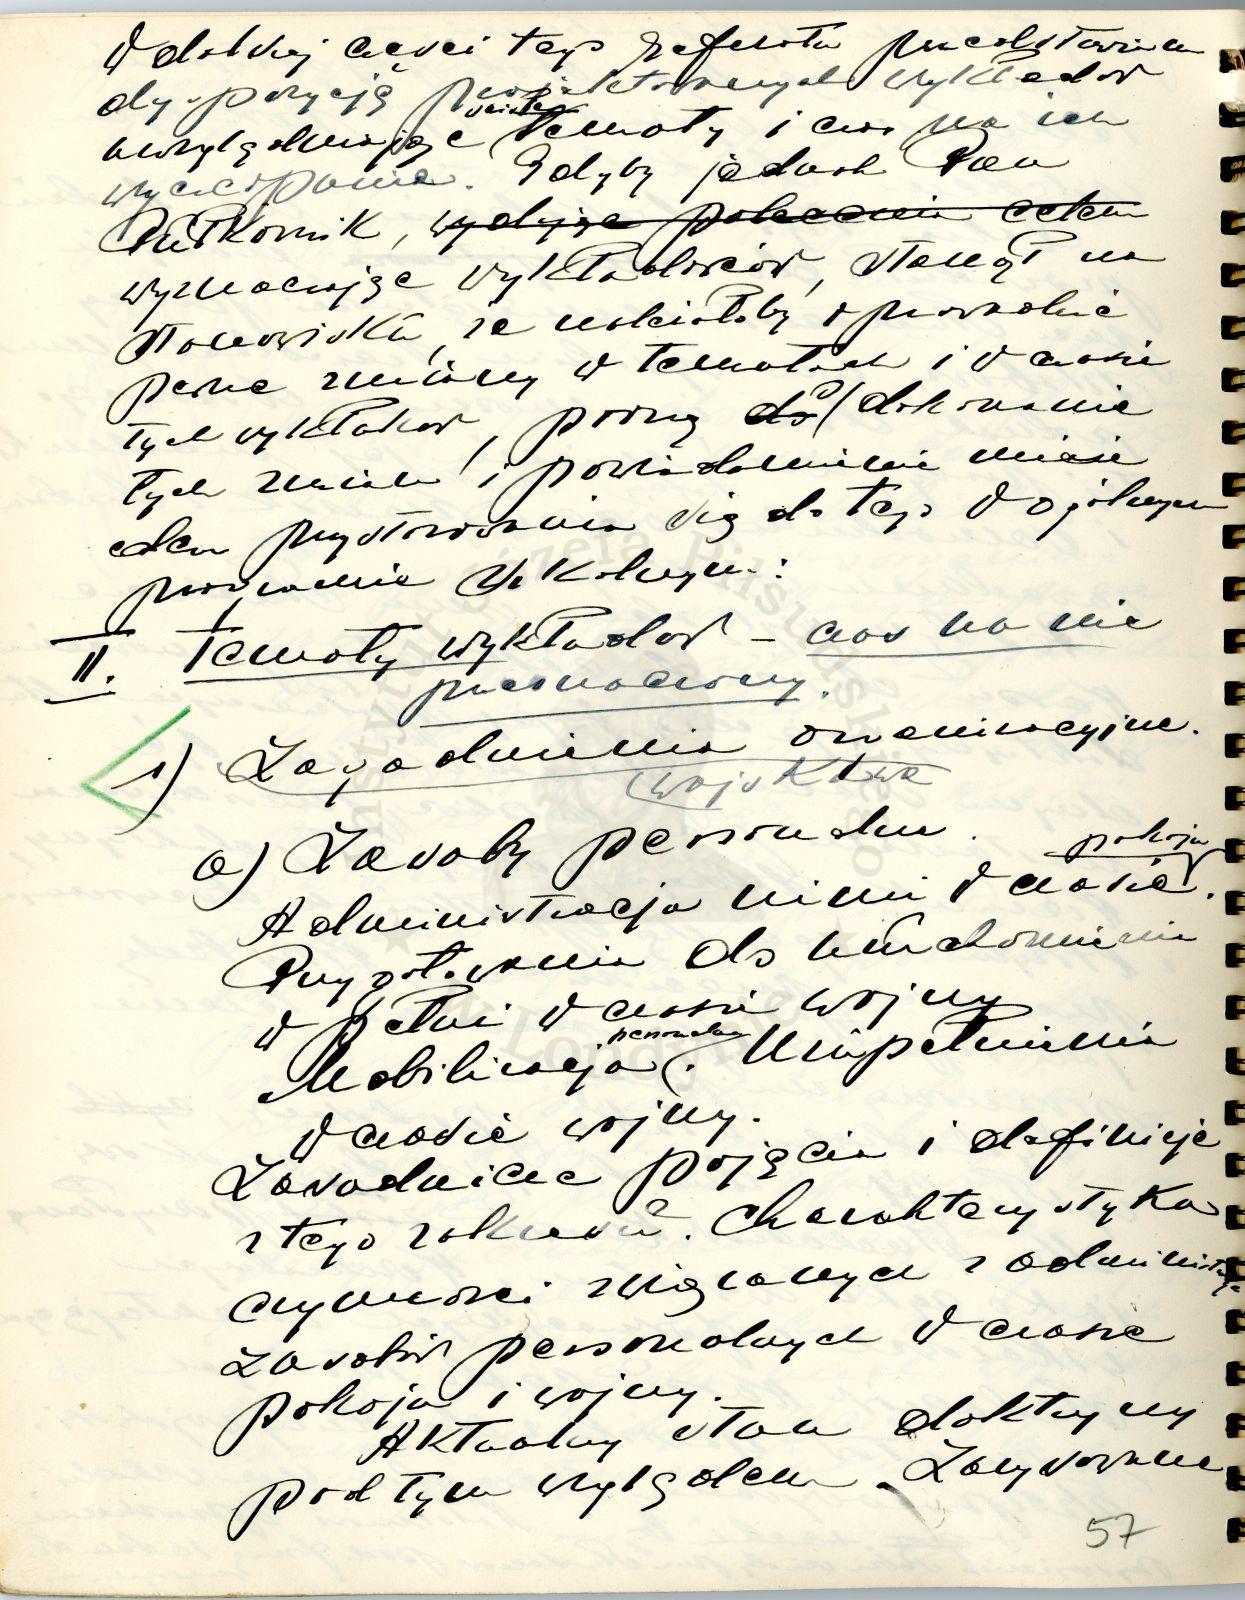 W dalszej części tego referatu przedstawiam
dyspozycję projektowanych wykładów
uwzględniającą ważniejsze tematy i czas na ich
wyczerpanie. Gdyby jednak Pan
Pułkownik, wydając polecenia celem
wyznaczając wykładowców, stanął na
stanowisku, że należałoby wprowadzić
pewne zmiany w tematach i w czasie
tych wykładów, proszę do o/ dokonanie
tych zmian i powiadomienie mnie
celem przystosowania się do tego w ogólnym
programie szkolnym:
II. Tematy wykładów – czas na nie
przeznaczony.
1) Zagadnienia organizacyjne.
(wojskowe
a) Zasoby personalne.
Administracja nimi w czasie pokoju.
Przygotowania do uruchomienia
w pełni w czasie wojny
Mobilizacja personalna. Uzupełnienia
w czasie wojny.
Zasadnicze pojęcia i definicje
z tego zakresu. Charakterystyka
czynności związanych z administr.
zasobów personalnych w czasie
pokoju i wojny.
Aktualny stan doktryny
pod tym względem.
57